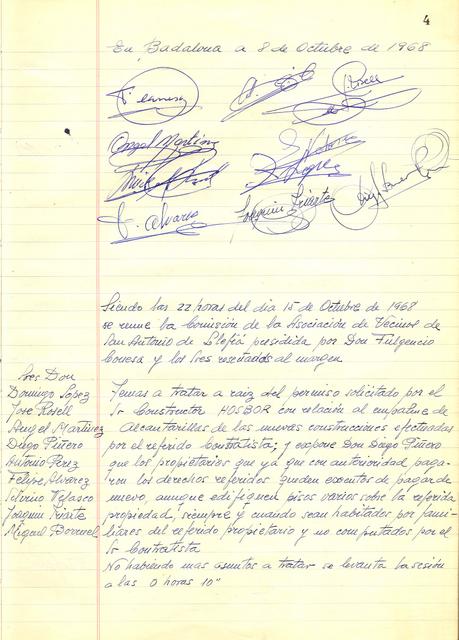 4
En Badalona a 8 de Octubre de 1968
Angel Martinez
F. Alvarez
Joaquin Iriarte
Siendo las 22 horas del dia 15 de Octubre de 1968
se reune la Comisión de la Asociación de Vecinos de
San Antonio de Llefiá presidida por Don Fulgencio
Conesa y los Sres reseñados al margen
Sres Don
Domingo Lopez
Jose Rosell
Angel Martinez
Diego Piñero
Antonio Perez
Felipe Alvarez
Silvino Velasco
Joaquin Iriarte
Miguel Borruel
Temas a tratar a raiz del permiso solicitado por el
Sr Constructor HOSBOR con relación al empalme de
Alcantarillas de las nuevas construcciones efectuadas
por el referido Contratista; y expone Don Diego Piñero
que los propietarios que ya que con autoridad paga-
ron los derechos referidos queden exentos de pagar de
nuevo, aunque edifiquen pisos varios sobre la referida
propiedad, siempre y cuando sean habitados por fami-
liares del referido propietario y no computados por el
Sr Contratista
No habiendo mas asuntos a tratar se levanta la sesión
a las 0 horas 10"